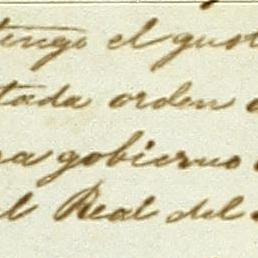 tengo el gust
tada orden
na gobierno
el Real del